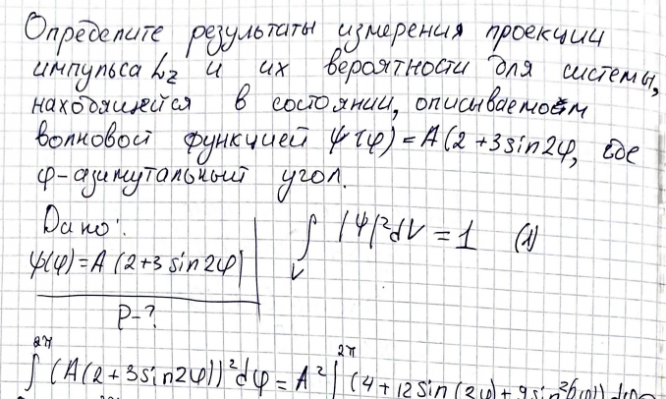 Определите результаты измерения проекции
импульса Lz и их вероятности для системы,
находящейся в состоянии, описываемом
волновой функцией ψ(φ) = A(2+3sin2φ, где
φ-азимутальный угол.
Дано:
∫V |ψ|²dV = 1 (1)
ψ(φ) = A(2+3sin2φ)
P-?
∫2π (A(2+3sin2φ))²dφ = A² ∫2π (4+12sin(2φ)+9sin²